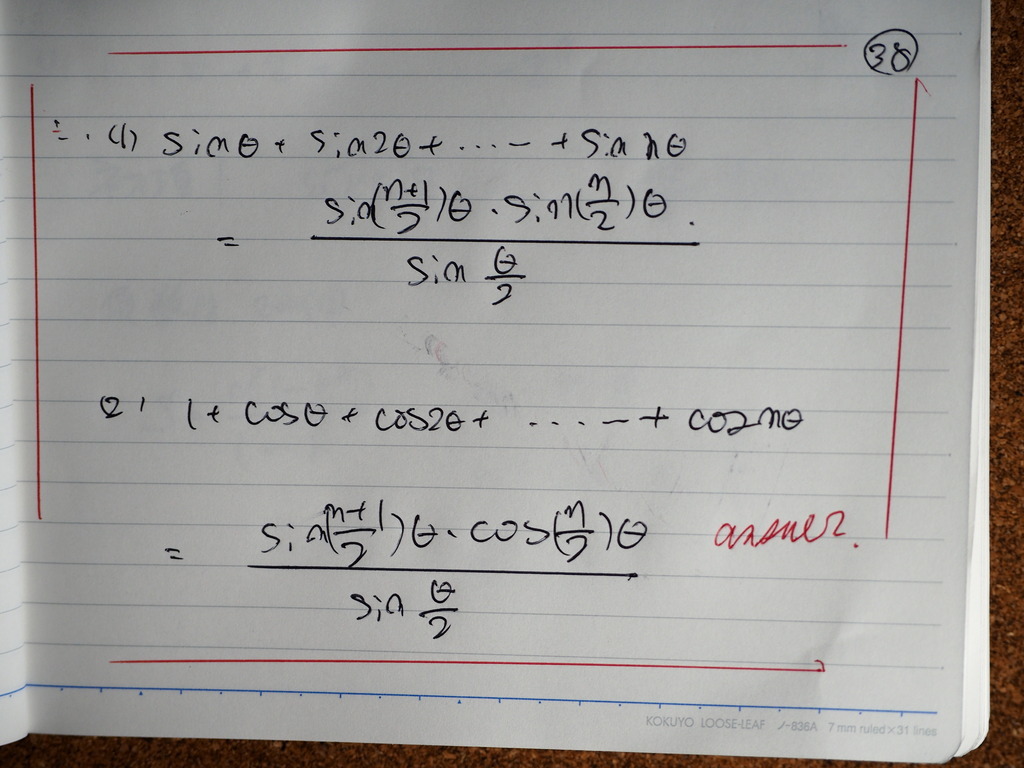 38
∴. (1) sinθ + sin2θ + ...... + sin nθ
= sin(n+1/2)θ · sin(n/2)θ / sin θ/2
(2) 1 + cosθ + cos2θ + ...... + cos nθ
= sin(n+1/2)θ · cos(n/2)θ / sin θ/2
answer.
KOKUYO LOOSE-LEAF ノ-836A 7 mm ruled×31 lines